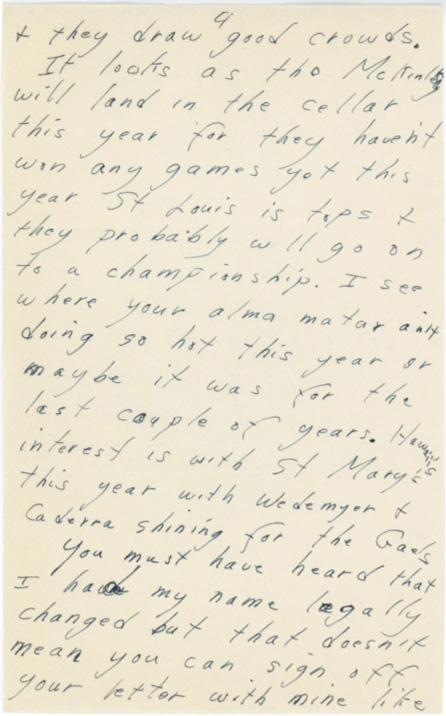 9
+ they draw good crowds.
It looks as tho McKinley
will land in the cellar
this year for they haven't
won any games yet this
year St Louis is tops +
they probably will go on
to a championship. I see
where your alma matar aint
doing so hot this year or
maybe it was for the
last couple of years. Hawaii's
interest is with St Mary's
this year with Wedemyer +
Caderra shining for the Gaels
You must have heard that
I had my name legally
changed but that doesnit
mean you can sign off
your letter with mine like